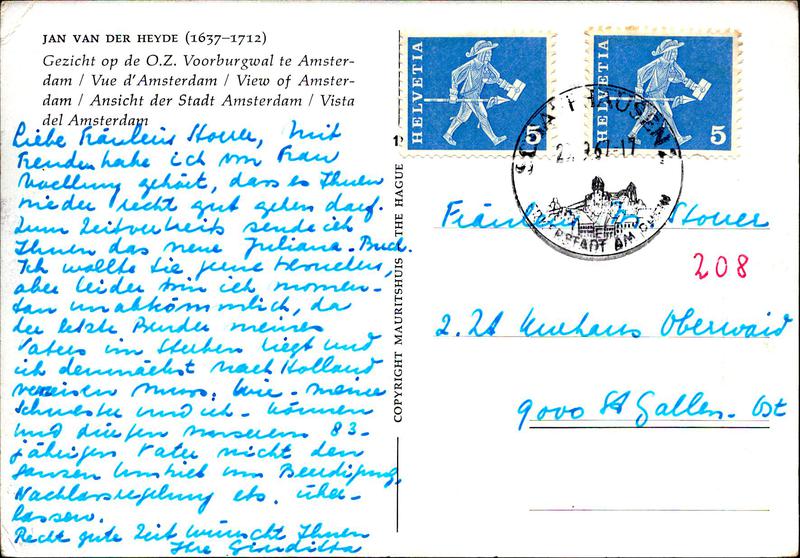 JAN VAN DER HEYDE (1637–1712)
Gezicht op de O.Z. Voorburgwal te Amster-
dam / Vue d'Amsterdam / View of Amster-
dam / Ansicht der Stadt Amsterdam / Vista
del Amsterdam
Liebe Fräulein Stover, Mit
Freuden habe ich von Frau
gehört, dass es Ihnen
wieder recht gut gehen darf.
Zum Zeitvertreib sende ich
Ihnen das neue Juliana-Buch.
Ich wollte Sie gerne besuchen,
aber leider bin ich momen-
tan unabkömmlich, da
der letzte Bruder meines
Vaters im Sterben liegt und
ich demnächst nach Holland
verreisen muss. Wir - meine
Schwester und ich - können
und dürfen unserem 83-
jährigen Vater nicht den
ganzen Umtrieb um Beerdigung,
Nachlassregelung etc. über-
lassen.
Recht gute Zeit wünscht Ihnen
Ihre Giuditta
COPYRIGHT MAURITSHUIS THE HAGUE
HELVETIA
5
HELVETIA
5
SCHAFFHAUSEN
67-17
Fräulein Stover
208
z. Zt Kurhaus Oberwaid
9000 St Gallen-Ost